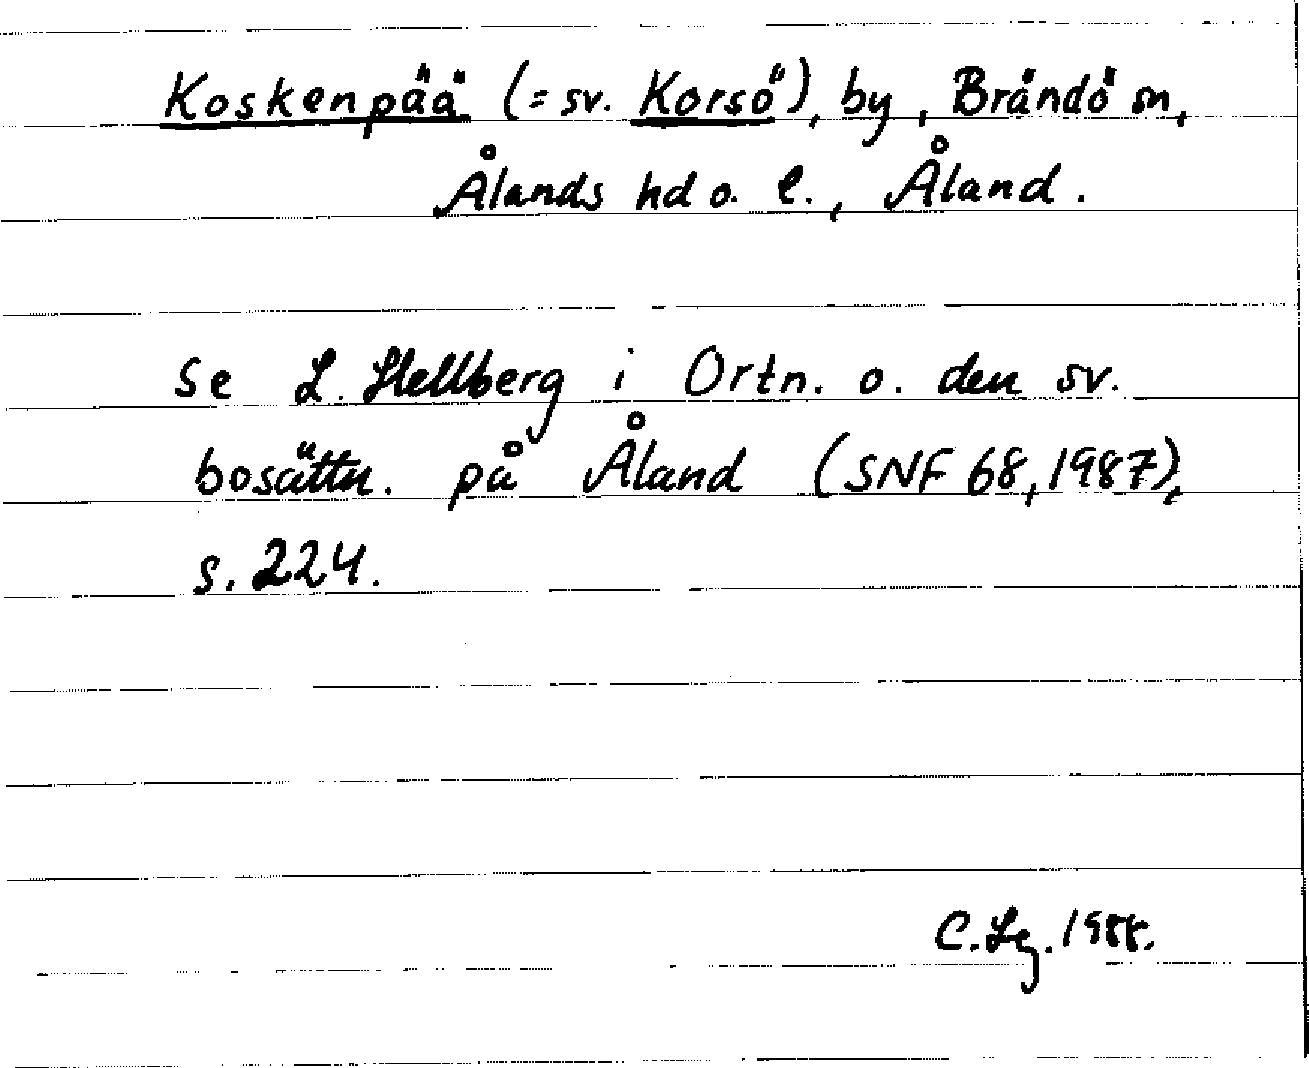 Koskenpää (= sv. Korsö), by, Brändö sn,
Ålands hd o. l., Åland.
Se L. Hellberg i Ortn. o. den sv.
bosättn. på Åland (SNF 68, 1987),
s. 224.
C. Lg. 1988.